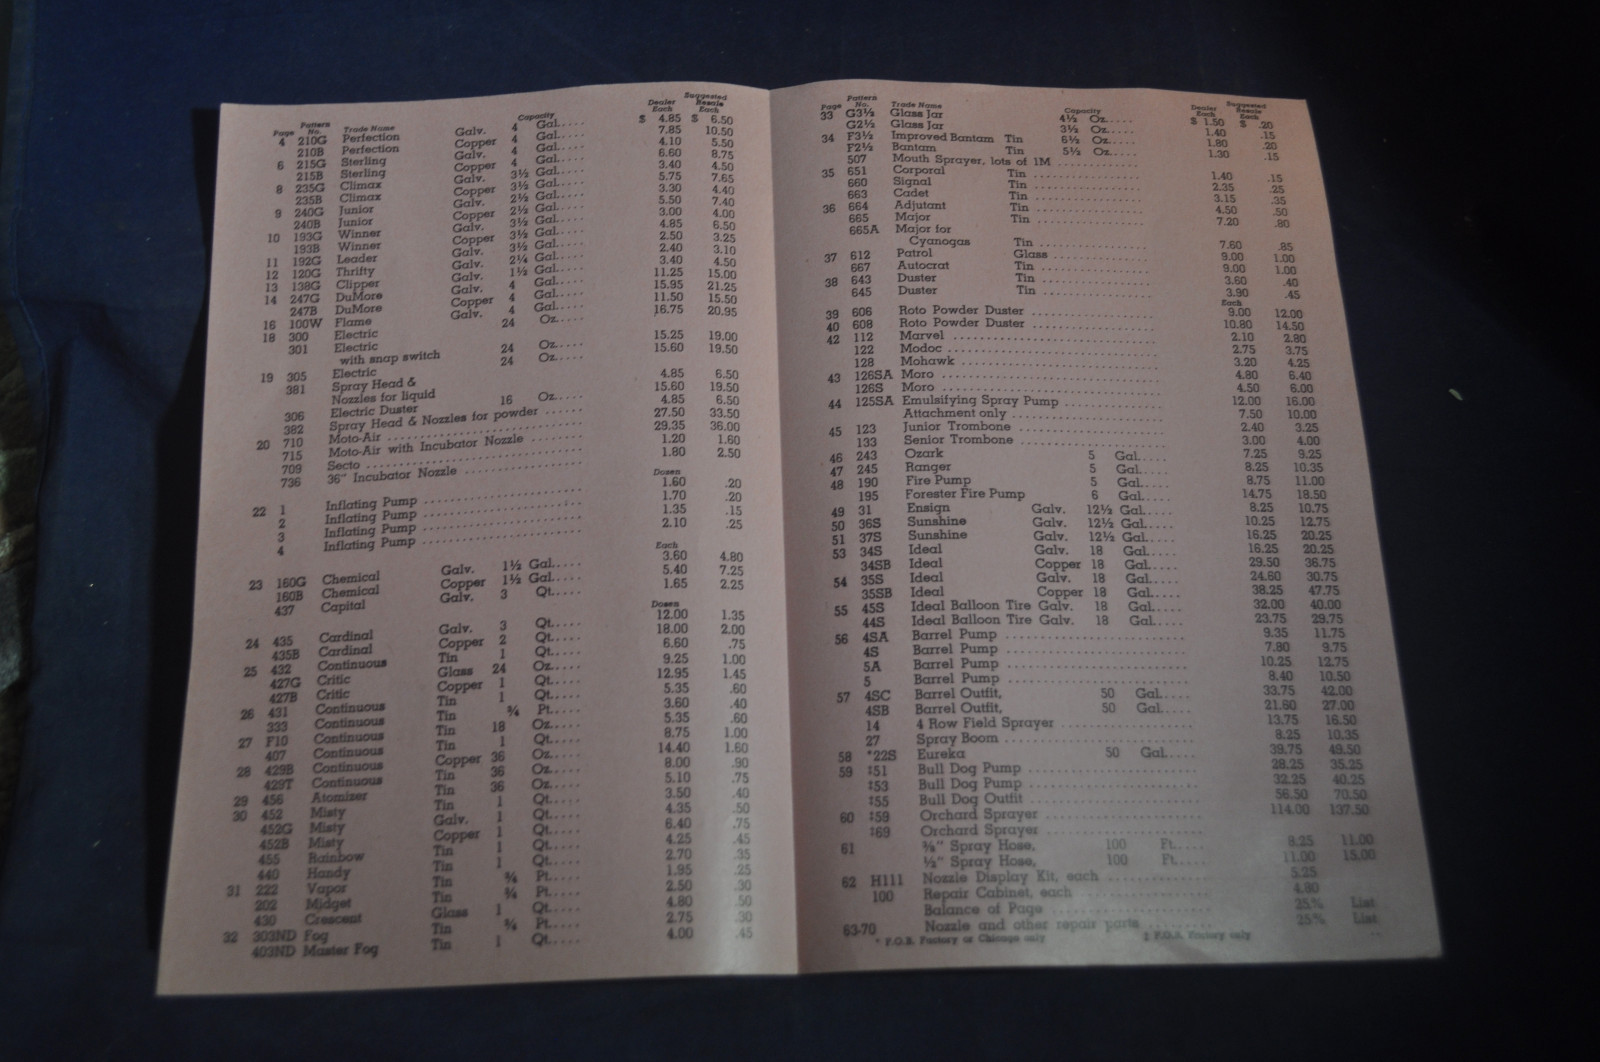 Page Pattern No. Trade Name Capacity Dealer Each Suggested Resale Each
4 210G Perfection Galv. 4 Gal..... $ 4.85 $ 6.50
210B Perfection Copper 4 Gal..... 7.85 10.50
6 215G Sterling Galv. 4 Gal..... 4.10 5.50
215B Sterling Copper 4 Gal..... 6.60 8.75
8 235G Climax Galv. 3½ Gal..... 3.40 4.50
235B Climax Copper 3½ Gal..... 5.75 7.65
9 240G Junior Galv. 2½ Gal..... 3.30 4.40
240B Junior Copper 2½ Gal..... 5.50 7.40
10 193G Winner Galv. 3½ Gal..... 3.00 4.00
193B Winner Copper 3½ Gal..... 4.85 6.50
11 192G Leader Galv. 3½ Gal..... 2.50 3.25
12 120G Thrifty Galv. 2¼ Gal..... 2.40 3.10
13 138G Clipper Galv. 1½ Gal..... 3.40 4.50
14 247G DuMore Galv. 4 Gal..... 11.25 15.00
247B DuMore Copper 4 Gal..... 15.95 21.25
16 100W Flame Galv. 4 Gal..... 11.50 15.50
18 300 Electric 24 Oz..... 16.75 20.95
301 Electric
with snap switch 24 Oz..... 15.25 19.00
19 305 Electric 24 Oz..... 15.60 19.50
381 Spray Head &
Nozzles for liquid 4.85 6.50
306 Electric Duster 16 Oz..... 15.60 19.50
382 Spray Head & Nozzles for powder ...... 4.85 6.50
20 710 Moto-Air ........ 27.50 33.50
715 Moto-Air with Incubator Nozzle ........ 29.35 36.00
709 Secto ........ 1.20 1.60
736 36" Incubator Nozzle ........ 1.80 2.50
Dozen
22 1 Inflating Pump ........ 1.60 .20
2 Inflating Pump ........ 1.70 .20
3 Inflating Pump ........ 1.35 .15
4 Inflating Pump ........ 2.10 .25
Each
23 160G Chemical Galv. 1½ Gal..... 3.60 4.80
160B Chemical Copper 1½ Gal..... 5.40 7.25
437 Capital Galv. 3 Qt..... 1.65 2.25
Dozen
24 435 Cardinal Galv. 3 Qt..... 12.00 1.35
435B Cardinal Copper 2 Qt..... 18.00 2.00
25 432 Continuous Tin 1 Qt..... 6.60 .75
427G Critic Glass 24 Oz..... 9.25 1.00
427B Critic Copper 1 Qt..... 12.95 1.45
26 431 Continuous Tin 1 Qt..... 5.35 .60
333 Continuous Tin ¾ Pt..... 3.60 .40
27 F10 Continuous Tin 18 Oz..... 5.35 .60
407 Continuous Tin 1 Qt..... 8.75 1.00
28 429B Continuous Copper 36 Oz..... 14.40 1.60
429T Continuous Tin 36 Oz..... 8.00 .90
29 456 Atomizer Tin 36 Oz..... 5.10 .75
30 452 Misty Tin 1 Qt..... 3.50 .40
452G Misty Galv. 1 Qt..... 4.35 .50
452B Misty Copper 1 Qt..... 6.40 .75
455 Rainbow Tin 1 Qt..... 4.25 .45
440 Handy Tin 1 Qt..... 2.70 .35
31 222 Vapor Tin ¾ Pt..... 1.95 .25
202 Midget Tin ¾ Pt..... 2.50 .30
430 Crescent Glass 1 Qt..... 4.80 .50
32 303ND Fog Tin ¾ Pt..... 2.75 .30
403ND Master Fog Tin 1 Qt..... 4.00 .45
Page Pattern No. Trade Name Capacity Dealer Each Suggested Resale Each
33 G3½ Glass Jar 4½ Oz..... $ 1.50 $ .20
G2½ Glass Jar 3½ Oz..... 1.40 .15
34 F3½ Improved Bantam Tin 6½ Oz..... 1.80 .20
F2½ Bantam Tin 5½ Oz..... 1.30 .15
507 Mouth Sprayer, lots of 1M ........
35 651 Corporal Tin ........ 1.40 .15
660 Signal Tin ........ 2.35 .25
663 Cadet Tin ........ 3.15 .35
36 664 Adjutant Tin ........ 4.50 .50
665 Major Tin ........ 7.20 .80
665A Major for
Cyanogas Tin ........ 7.60 .85
37 612 Patrol Glass ........ 9.00 1.00
667 Autocrat Tin ........ 9.00 1.00
38 643 Duster Tin ........ 3.60 .40
645 Duster Tin ........ 3.90 .45
Each
39 606 Roto Powder Duster ........ 9.00 12.00
40 608 Roto Powder Duster ........ 10.80 14.50
42 112 Marvel ........ 2.10 2.80
122 Modoc ........ 2.75 3.75
128 Mohawk ........ 3.20 4.25
43 126SA Moro ........ 4.80 6.40
126S Moro ........ 4.50 6.00
44 125SA Emulsifying Spray Pump ........ 12.00 16.00
Attachment only ........ 7.50 10.00
45 123 Junior Trombone ........ 2.40 3.25
133 Senior Trombone ........ 3.00 4.00
46 243 Ozark 5 Gal..... 7.25 9.25
47 245 Ranger 5 Gal..... 8.25 10.35
48 190 Fire Pump 5 Gal..... 8.75 11.00
195 Forester Fire Pump 6 Gal..... 14.75 18.50
49 31 Ensign Galv. 12½ Gal..... 8.25 10.75
50 36S Sunshine Galv. 12½ Gal..... 10.25 12.75
51 37S Sunshine Galv. 12½ Gal..... 16.25 20.25
53 34S Ideal Galv. 18 Gal..... 16.25 20.25
34SB Ideal Copper 18 Gal..... 29.50 36.75
54 35S Ideal Galv. 18 Gal..... 24.60 30.75
35SB Ideal Copper 18 Gal..... 38.25 47.75
55 45S Ideal Balloon Tire Galv. 18 Gal..... 32.00 40.00
44S Ideal Balloon Tire Galv. 18 Gal..... 23.75 29.75
56 4SA Barrel Pump ........ 9.35 11.75
4S Barrel Pump ........ 7.80 9.75
5A Barrel Pump ........ 10.25 12.75
5 Barrel Pump ........ 8.40 10.50
57 4SC Barrel Outfit, 50 Gal..... 33.75 42.00
4SB Barrel Outfit, 50 Gal..... 21.60 27.00
14 4 Row Field Sprayer ........ 13.75 16.50
27 Spray Boom ........ 8.25 10.35
58 *22S Eureka 50 Gal..... 39.75 49.50
59 ‡51 Bull Dog Pump ........ 28.25 35.25
‡53 Bull Dog Pump ........ 32.25 40.25
‡55 Bull Dog Outfit ........ 56.50 70.50
60 ‡59 Orchard Sprayer ........ 114.00 137.50
‡69 Orchard Sprayer ........
61 ⅜" Spray Hose, 100 Ft..... 8.25 11.00
½" Spray Hose, 100 Ft..... 11.00 15.00
62 H111 Nozzle Display Kit, each ........ 5.25
100 Repair Cabinet, each ........ 4.80
Balance of Page ........ 25% List
63-70 Nozzle and other repair parts ........ 25% List
* F.O.B. Factory or Chicago only ‡ F.O.B. Factory only